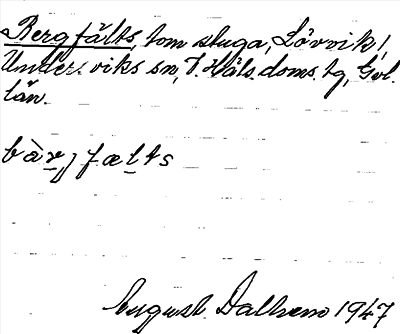 Bergfälts, tom stuga, Lövvik,
Underviks sn, V. Häls. doms. tg, Gvl.
län.
bàrj fælts
August Dalhem 1947